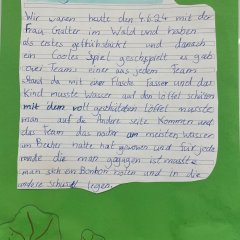 Wir waren heute den 4.6.24 mit der
Frau Galter im Wald und haben
als erstes gefrühstückt und danach
ein Cooles Spiel geschpielt es gab
vier Teams einer aus jedem Team
stand da mit einer Flasche Wasser und das
Kind musste Wasser auf den löffel schüten
mit dem voll geschüteten löffel musste
man auf die Andere seite Kommen und
das Team das nacher am meisten wasser
im Becher hatte hat gewonen und für jede
runde die man gegangen ist musste
man sich ein Bonbon holen und in die
andere schüssel legen.